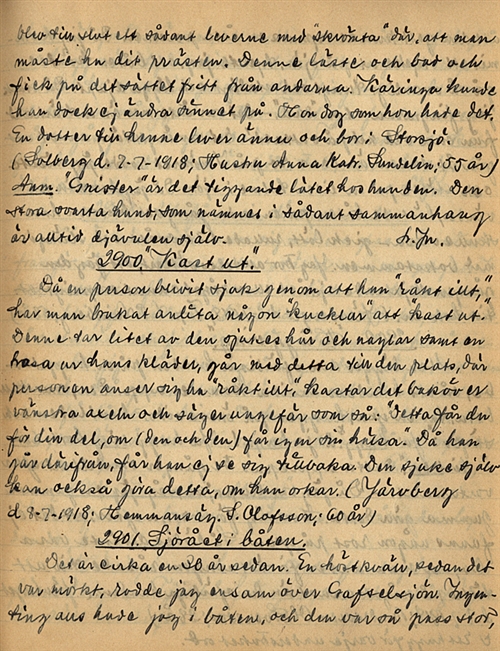 blev till slut ett sådant leverne med "skrömta" där, att man
måste ha dit prästen. Denne läste och bad och
fick på det sättet fritt från andarna. Käringa kunde
han dock ej ändra sinnet på. Hon dog som hon hade det.
En dotter till henne lever ännu och bor i Storsjö.
(Solberg d. 7-7-1918; Hustru Anna Katr. Sundelin; 55 år)
Anm. "Gnister" är det tiggande lätet hos hunden. Den
stora svarta hund, som nämnes i sådant sammanhang
är alltid djävulen själv.
2900. "Kast ut."
Då en person blivit sjuk genom att han "råkt illt,"
har man brukat anlita någon "kucklar" att "kast ut."
Denne tar litet av den sjukes hår och naglar samt en
trasa ur hans kläder, går med detta till den plats, där
personen anser sig ha "råkt illt", kastar det baköver
vänstra axeln och säger ungefär som så: "detta får du
för din del, om (den och den) får igen sin hälsa." Då han
går därifrån, får han ej se sig tillbaka. Den sjuke själv
kan också göra detta, om han orkar. (Järvberg
d. 8-7-1918; Hemmansäg. S. Olofsson; 60 år)
2901. Sjörået i båten.
Det är cirka en 20 år sedan. En höstkväll, sedan det
var mörkt, rodde jag ensam över Gafselsjön. Ingen-
ting ans hade jag i båten, och den var så pass stor,